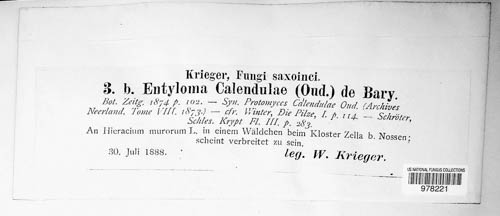 Krieger, Fungi saxoinci.
3. b. Entyloma Calendulae (Oud.) de Bary.
Bot. Zeitg. 1874 p. 102. — Syn. Protomyces Calendulae Oud. (Archives
Neerland. Tome VIII. 1873.) — cfr. Winter, Die Pilze, I. p. 114. — Schröter,
Schles. Krypt Fl. III. p. 283.
An Hieracium murorum L. in einem Wäldchen beim Kloster Zella b. Nossen;
scheint verbreitet zu sein.
30. Juli 1888.
leg. W. Krieger.
US NATIONAL FUNGUS COLLECTIONS
978221